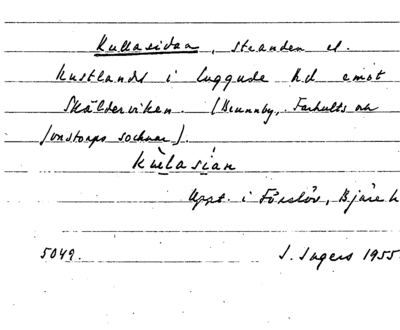 Kullasidan, stranden el.
kustlandet i Luggude hd emot
Skälderviken. (Brunnby, Farhults och
Jonstorps socknar).
kùlasían
Uppt. i Förslöv, Bjäre h
5049. S. Ingers 1955